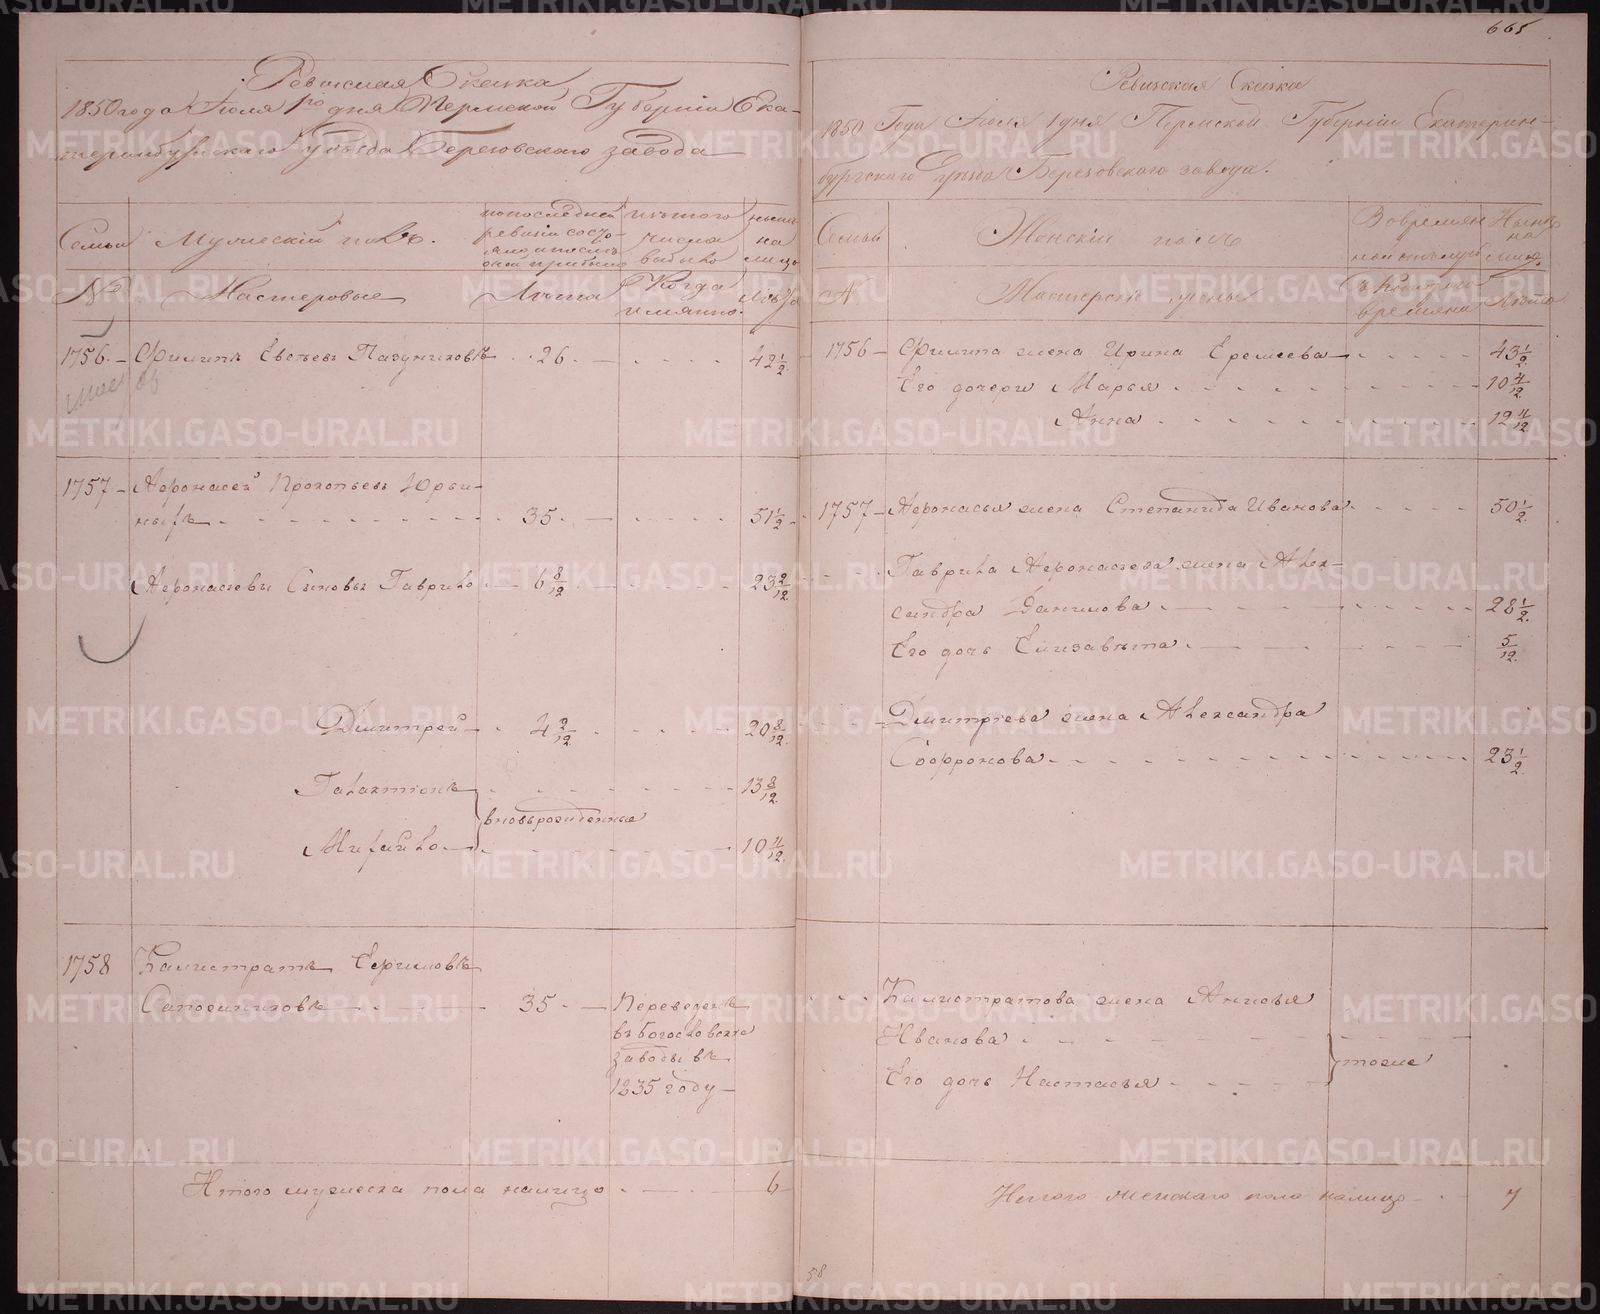 665
Ревизская Сказка
1850 года Июля 1го дня Пермской Губернии Ека-
теринбургскаго Уезда Березовскаго завода
Семьи
Мужеский полъ.
по последней ревизии состо-
изъ того числа выбыло
ныне на лицо
№
Мастеровые
Лета
Когда имянно.
Лета
1756. Филипъ Евсеевъ Пазуниковъ 26 42 1/2
1757 Афонасей Прокопьевъ Юрьи-
ныхъ 35 51 1/2
Афонасьевы Сыновья Гаврило 6 8/12 23 2/12
Дмитрей 4 2/12 20 8/12
Галактионъ 13 8/12
вновьрожденные
Михайло 10 4/12
1758 Калистратъ Ефимовъ
Сапожниковъ 35 Переведенъ
въ Богословские
заводы въ
1835 году
Итого мужеска пола налицо 6
Ревизская Сказка
1850 Года Июля 1 дня Пермской Губернии Екатерин-
бургскаго Уезда Березовскаго завода.
Семьи
Женский полъ
Во времян-
ной отлучке
Ныне на лицо
№
Мастерские жены
Съ котораго времяни
Лета
1756 Филипа жена Ирина Еремеева 43 1/2
Его дочери Марья 10 4/12
Анна 12 4/12
1757 Афонасья жена Степанида Иванова 50 1/2
Гаврила Афонасьева жена Алек-
сандра Данилова 28 1/2
Его дочь Елизавета 5/12
Дмитриева жена Александра
Софронова 23 1/2
Калистратова жена Анисья
Иванова
тоже
Его дочь Настасья
Итого женскаго пола налицо 7
58
METRIKI.GASO-URAL.RU